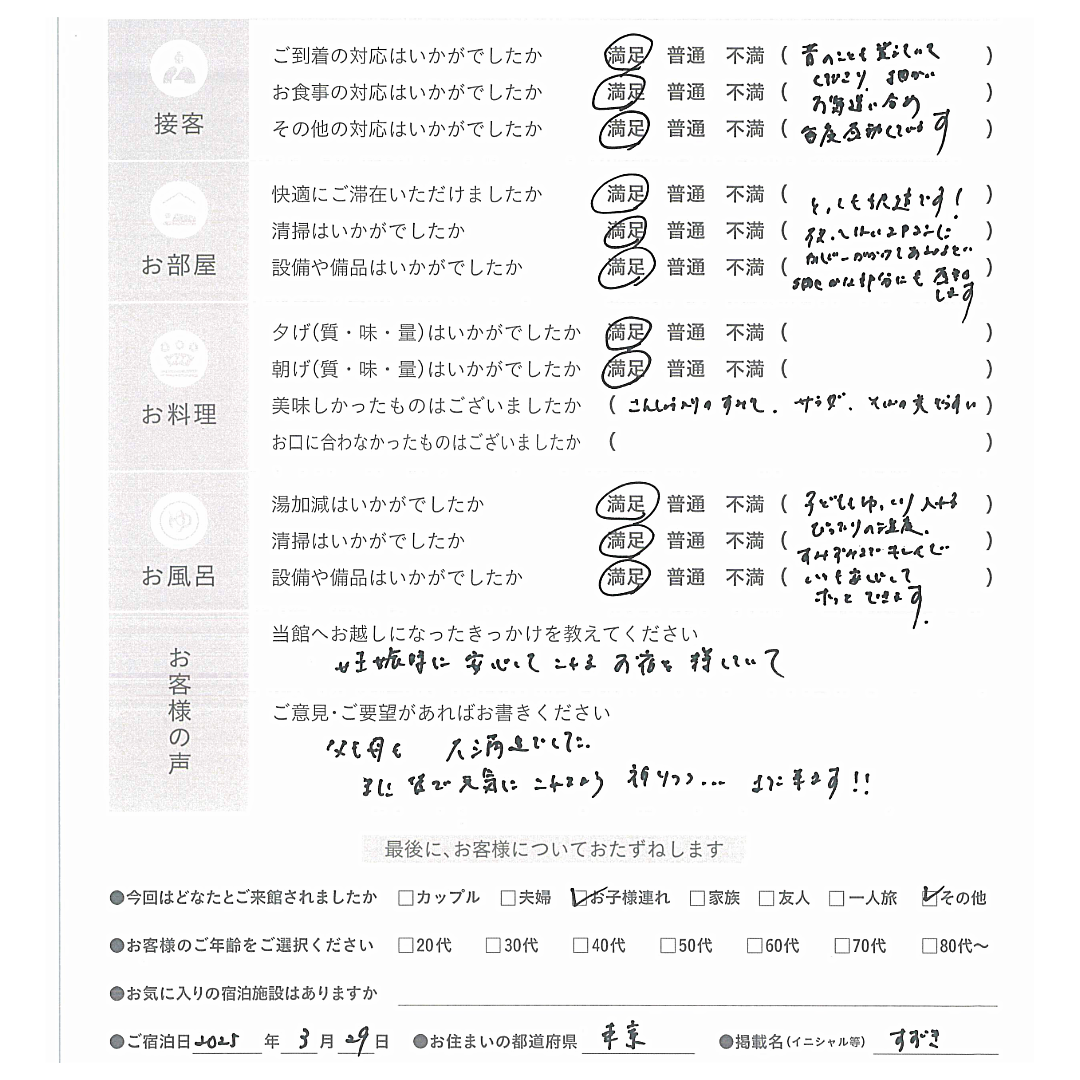 接客
ご到着の対応はいかがでしたか 満足 普通 不満 ( 昔のことも覚えていて )
くださり、細かい
お食事の対応はいかがでしたか 満足 普通 不満 ( お気遣いに含め )
その他の対応はいかがでしたか 満足 普通 不満 ( 毎度感動しています )
お部屋
快適にご滞在いただけましたか 満足 普通 不満 ( とっても快適です! )
清掃はいかがでしたか 満足 普通 不満 ( )
設備や備品はいかがでしたか 満足 普通 不満 ( 細かな部分にも感動 )
します
お料理
夕げ(質・味・量)はいかがでしたか 満足 普通 不満 ( )
朝げ(質・味・量)はいかがでしたか 満足 普通 不満 ( )
美味しかったものはございましたか ( サラダ、 )
お口に合わなかったものはございましたか ( )
ゆ
お風呂
湯加減はいかがでしたか 満足 普通 不満 ( 子どももゆっくり入れる )
ぴったりの温度。
清掃はいかがでしたか 満足 普通 不満 ( すみずみまできれいで )
設備や備品はいかがでしたか 満足 普通 不満 ( いつも安心して )
ホッとできます。
お客様の声
当館へお越しになったきっかけを教えてください
妊娠時に 安心して こられる お宿を 探していて
ご意見・ご要望があればお書きください
父も母も 大満足でした。
また 皆で元気に こられるよう 祈りつつ... また来ます!!
最後に、お客様についておたずねします
●今回はどなたとご来館されましたか □カップル □夫婦 ☑お子様連れ □家族 □友人 □一人旅 ☑その他
●お客様のご年齢をご選択ください □20代 □30代 □40代 □50代 □60代 □70代 □80代〜
●お気に入りの宿泊施設はありますか
●ご宿泊日 2025 年 3 月 29 日 ●お住まいの都道府県 東京 ●掲載名(イニシャル等) すずき